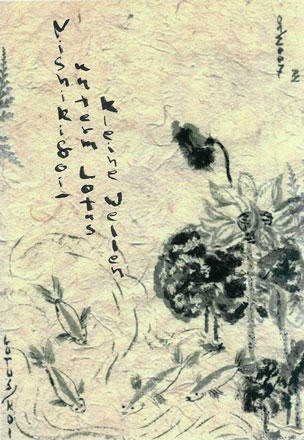 Nishikigoi
unterm Lotus
kleine Wellen
LOTUS KOI